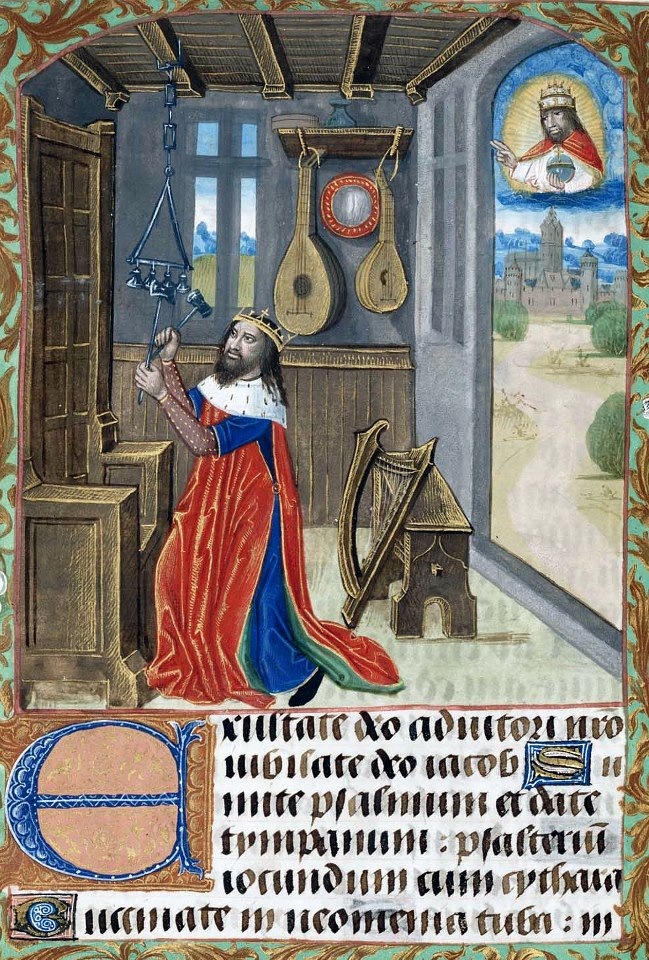 Exultate deo adiutori nro
iubilate deo iacob Su
mite psalmum et date
tympanum : psalteriū
iocundum cum cythara
Buccinate in neomenia tuba : in